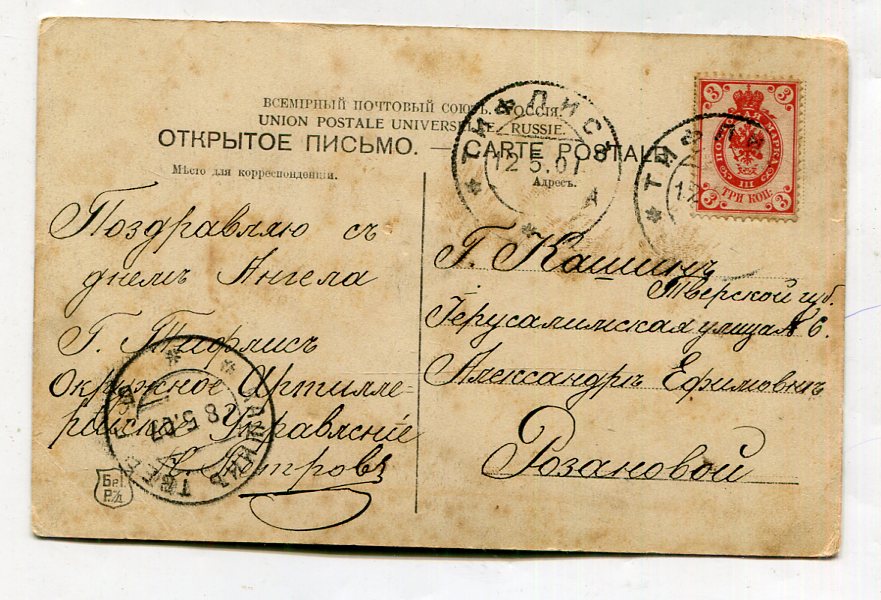 ВСЕМІРНЫЙ ПОЧТОВЫЙ СОЮЗЪ. РОССІЯ.
UNION POSTALE UNIVERSELLE. RUSSIE.
ОТКРЫТОЕ ПИСЬМО. — CARTE POSTALE
Мѣсто для корреспонденціи.
Адресъ.
Поздравляю съ
днемъ Ангела
Г. Тифлисъ
Окружное Артилле-
рійское Управленіе
Н. Петровъ
Г. Кашинъ
Тверской губ.
Іерусалимская улица № 6.
Александрѣ Ефимовнѣ
Розановой
ТИФЛИСЪ
12 5.07
А
ТИФЛИ
12
3
3
3
3
ПОЧТОВАЯ МАРКА
III
ТРИ КОП.
КАШИНЪ ТВЕР. Г.
28 5.07